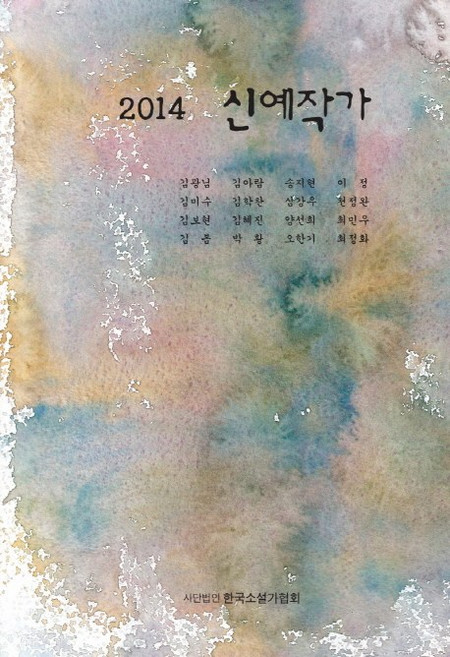 2014 신예작가
김광님 김아람 송지현 이 정
김미수 김학찬 심강우 천정완
김보현 김혜진 양선희 최민우
김 봄 박 황 오한기 최정화
사단법인 한국소설가협회